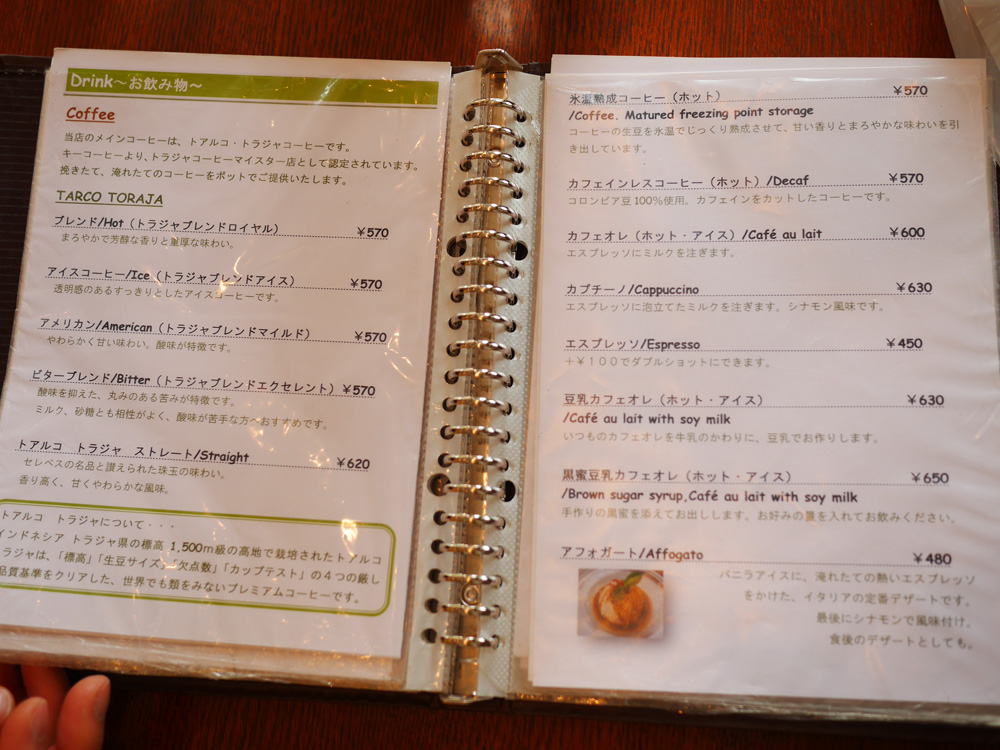 Drink～お飲み物～
Coffee
当店のメインコーヒーは、トアルコ・トラジャコーヒーです。
キーコーヒーより、トラジャコーヒーマイスター店として認定されています。
挽きたて、淹れたてのコーヒーをポットでご提供いたします。
TARCO TORAJA
ブレンド/Hot（トラジャブレンドロイヤル） ￥570
まろやかで芳醇な香りと重厚な味わい。
アイスコーヒー/Ice（トラジャブレンドアイス） ￥570
透明感のあるすっきりとしたアイスコーヒーです。
アメリカン/American（トラジャブレンドマイルド） ￥570
やわらかく甘い味わい。酸味が特徴です。
ビターブレンド/Bitter（トラジャブレンドエクセレント） ￥570
酸味を抑えた、丸みのある苦みが特徴です。
ミルク、砂糖とも相性がよく、酸味が苦手な方へおすすめです。
トアルコ　トラジャ　ストレート/Straight ￥620
セレベスの名品と讃えられた珠玉の味わい。
香り高く、甘くやわらかな風味。
トアルコ　トラジャについて・・・
インドネシア トラジャ県の標高 1,500m級の高地で栽培されたトアルコ
ラジャは、「標高」「生豆サイズ」「欠点数」「カップテスト」の４つの厳し
品質基準をクリアした、世界でも類をみないプレミアムコーヒーです。
氷温熟成コーヒー（ホット） ￥570
/Coffee. Matured freezing point storage
コーヒーの生豆を氷温でじっくり熟成させて、甘い香りとまろやかな味わいを引
き出しています。
カフェインレスコーヒー（ホット）/Decaf ￥570
コロンビア豆100％使用。カフェインをカットしたコーヒーです。
カフェオレ（ホット・アイス）/Café au lait ￥600
エスプレッソにミルクを注ぎます。
カプチーノ/Cappuccino ￥630
エスプレッソに泡立てたミルクを注ぎます。シナモン風味です。
エスプレッソ/Espresso ￥450
＋￥１００でダブルショットにできます。
豆乳カフェオレ（ホット・アイス） ￥630
/Café au lait with soy milk
いつものカフェオレを牛乳のかわりに、豆乳でお作りします。
黒蜜豆乳カフェオレ（ホット・アイス） ￥650
/Brown sugar syrup,Café au lait with soy milk
手作りの黒蜜を添えてお出しします。お好みの量を入れてお飲みください。
アフォガート/Affogato ￥480
バニラアイスに、淹れたての熱いエスプレッソ
をかけた、イタリアの定番デザートです。
最後にシナモンで風味付け。
食後のデザートとしても。